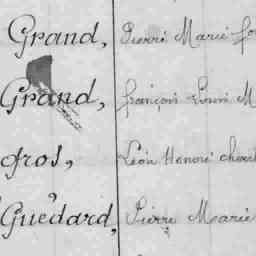 Grand, Pierre Marie
Grand, françois Louis M
Gros, Léon Honoré
Guédard, Pierre Marie